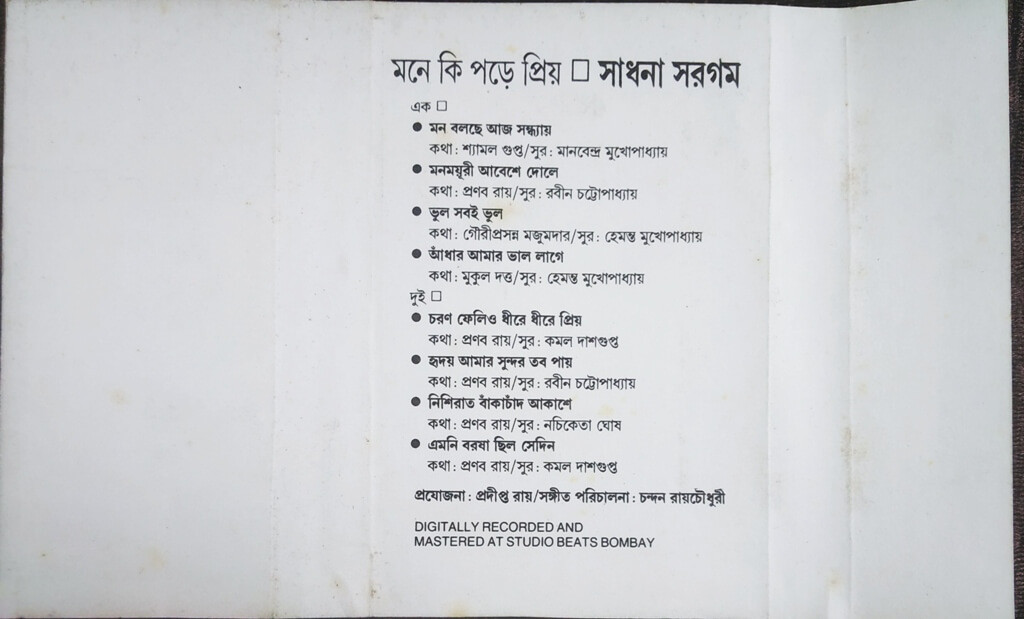 মনে কি পড়ে প্রিয় □ সাধনা সরগম
এক □
● মন বলছে আজ সন্ধ্যায়
কথা : শ্যামল গুপ্ত/সুর : মানবেন্দ্র মুখোপাধ্যায়
● মনময়ূরী আবেশে দোলে
কথা : প্রণব রায়/সুর : রবীন চট্টোপাধ্যায়
● ভুল সবই ভুল
কথা : গৌরীপ্রসন্ন মজুমদার/সুর : হেমন্ত মুখোপাধ্যায়
● আঁধার আমার ভাল লাগে
কথা : মুকুল দত্ত/সুর : হেমন্ত মুখোপাধ্যায়
দুই □
● চরণ ফেলিও ধীরে ধীরে প্রিয়
কথা : প্রণব রায়/সুর : কমল দাশগুপ্ত
● হৃদয় আমার সুন্দর তব পায়
কথা : প্রণব রায়/সুর : রবীন চট্টোপাধ্যায়
● নিশিরাত বাঁকাচাঁদ আকাশে
কথা : প্রণব রায়/সুর : নচিকেতা ঘোষ
● এমনি বরষা ছিল সেদিন
কথা : প্রণব রায়/সুর : কমল দাশগুপ্ত
প্রযোজনা : প্রদীপ্ত রায়/সঙ্গীত পরিচালনা : চন্দন রায়চৌধুরী
DIGITALLY RECORDED AND
MASTERED AT STUDIO BEATS BOMBAY